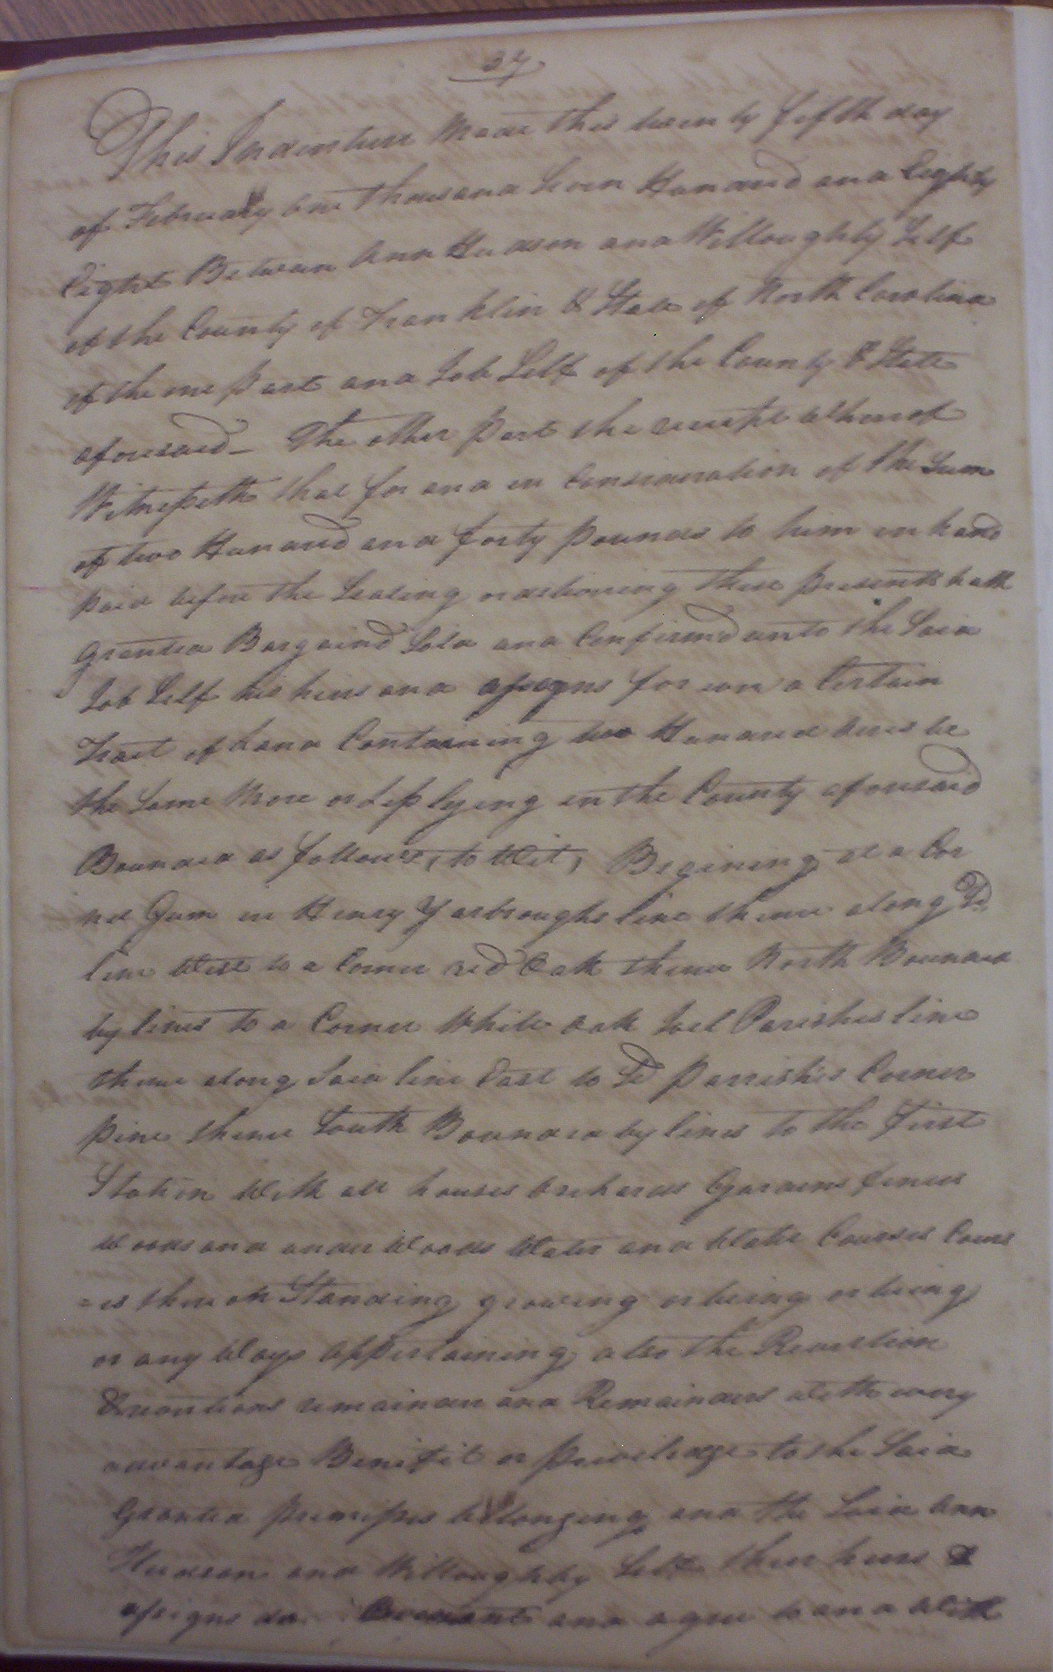 37
This Indenture Made this twenty fifth day
of February one thousand Seven Hundred and Eighty
Eight Between Ann Hudson and Willoughby Self
of the County of Franklin & State of North Carolina
of the one part and Job Self of the County & State
aforesaid - The other Part the receipt Whereof
Witnesseth that for and in Consideration of the Sum
of two Hundred and forty pounds to him in hand
paid before the Sealing or delivering these presents hath
granted Bargaind Sold and Confirmed unto the Said
Job Self his heirs and assigns for ever a Certain
Tract of Land Containing two Hundred Acres be
the Same More or Less lying in the County aforesaid
Bounded as follows, to Wit, Begining at a Cor
ner Gum in Henry Yarbroughs line thence along Sd
line West to a Corner red Oak thence North Bounded
by lines to a Corner White Oak Joel Parishes line
thence along Said line East to Sd Parrishes Corner
pine thence South Bounded by lines to the first
Station With all houses Orchards Gardens fences
Woods and under Woods Water and Water Courses Cours
=es there on Standing growing or being or being
or any Ways Appertaining also the Reversion
& reversions remainder and Remainders With every
advantage Benifit or priviledge to the Said
Granted premises belonging and the Said Ann
Hudson and Willoughby Self their heirs &
assigns do Covenant and agree to and With